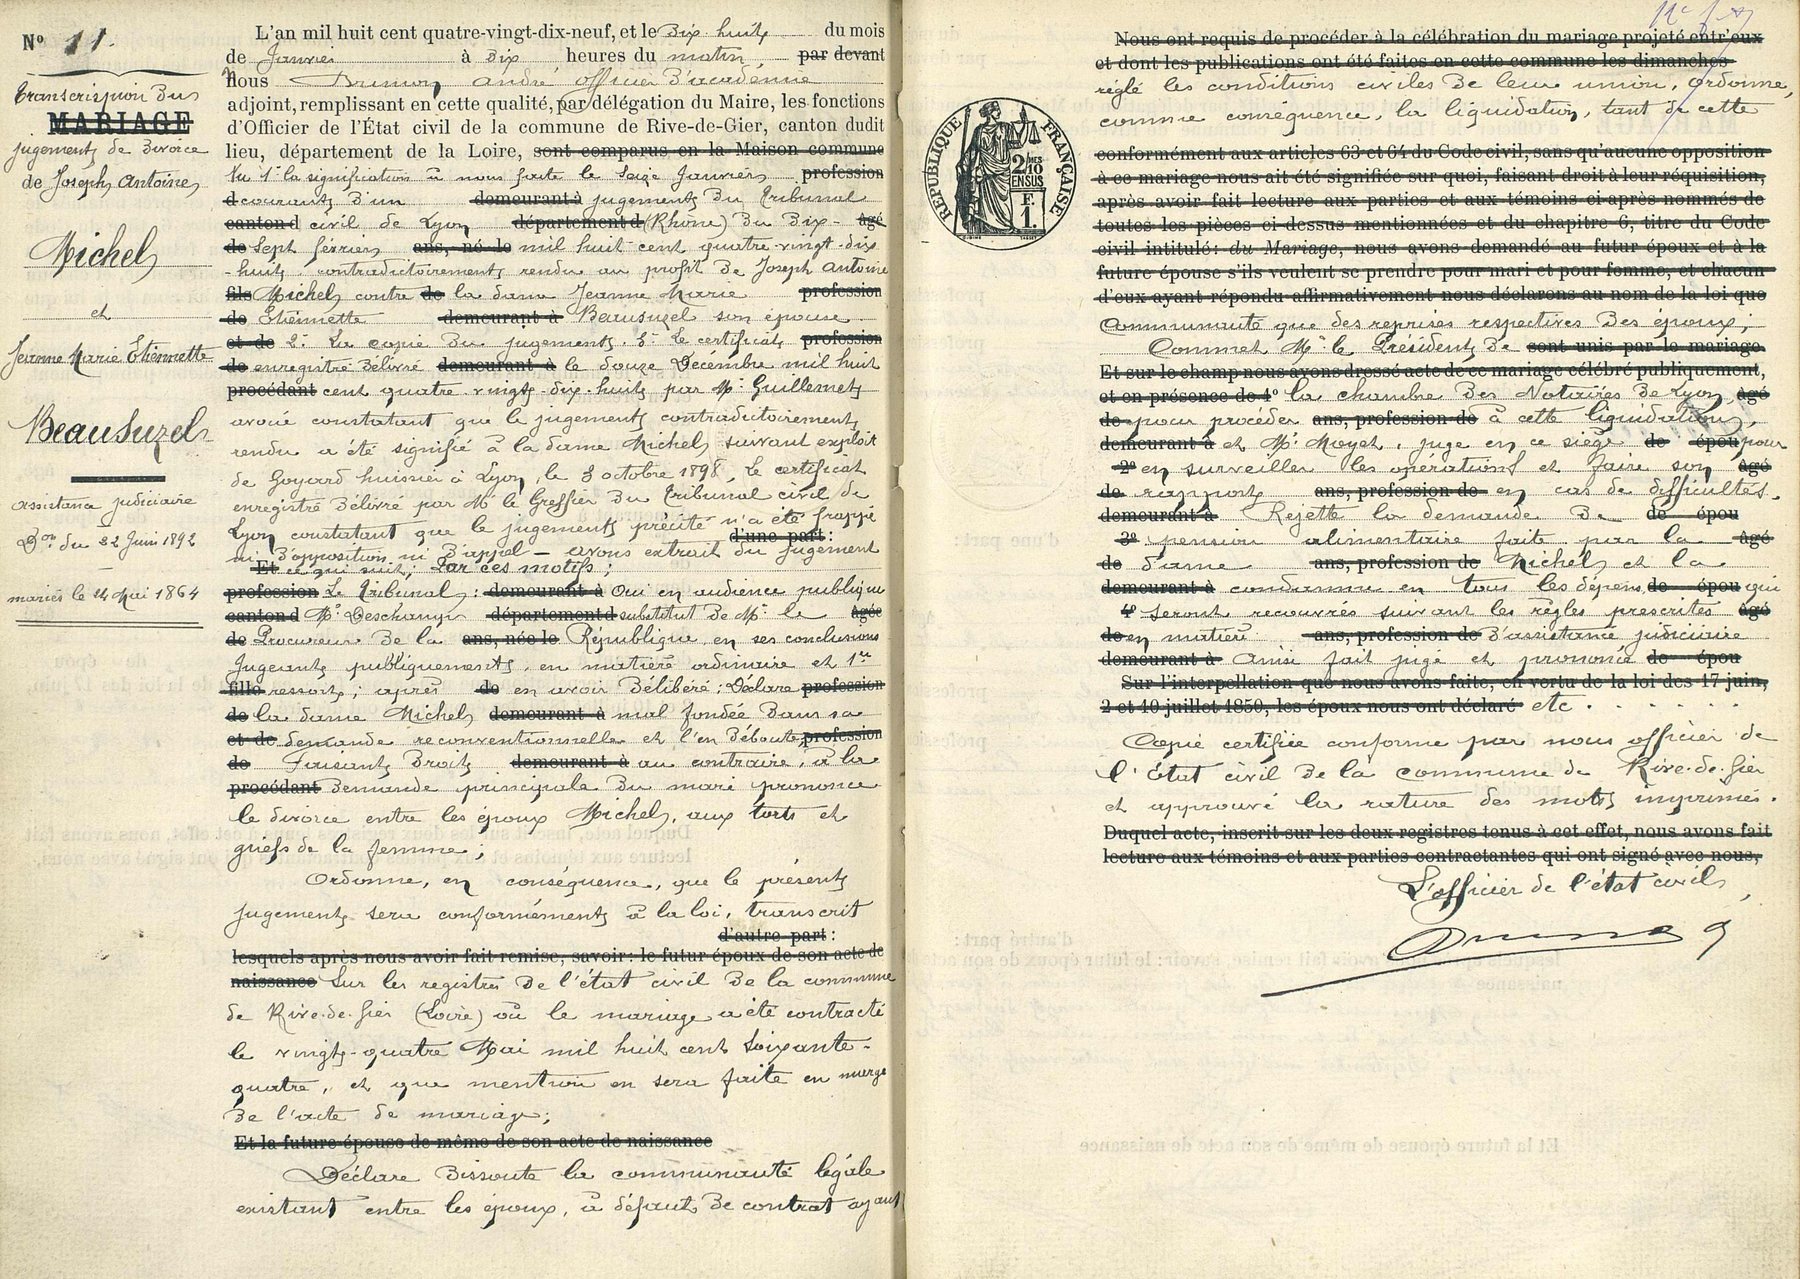 N° 11.
Transcription du
MARIAGE
jugement de divorce
de Joseph Antoine
Michel
et
Jeanne Marie Etiennette
Beausuzel
assistance judiciaire
Don du 22 Juin 1892
mariés le 24 Mai 1864
L'an mil huit cent quatre-vingt-dix-neuf, et le Dix-huit du mois
de Janvier à Dix heures du matin, par devant
Nous André officier d'académie
adjoint, remplissant en cette qualité, par délégation du Maire, les fonctions
d'Officier de l'État civil de la commune de Rive-de-Gier, canton dudit
lieu, département de la Loire, sont comparus en la Maison commune
Vu 1° la signification à nous faite le Seize Janvier profession
d courant d'un demeurant à jugement du Tribunal
canton d civil de Lyon département d (Rhône) du Dix- âgé
de Sept février ans, né le mil huit cent quatre-vingt-dix
-huit, contradictoirement rendu au profit de Joseph Antoine
fils Michel contre de la dame Jeanne Marie profession
de Etiennette demeurant à Beausuzel son épouse.
et de 2° La copie du jugement. 3° Le certificat profession
de enregistré délivré demeurant à le douze Décembre mil huit
procédant cent quatre-vingt-dix-huit par Me Guillemet
avoué constatant que le jugement contradictoirement
rendu a été signifié à la dame Michel suivant exploit
de Goyard huissier à Lyon, le 3 octobre 1898, Le certificat
enregistré délivré par Mr le Greffier du Tribunal civil de
Lyon constatant que le jugement précité n'a été frappé
d'une part:
ni d'opposition ni d'appel — avons extrait du jugement
Et ce qui suit; Par ces motifs;
profession Le Tribunal: demeurant à Oui en audience publique
canton d Mr Deschamps département d substitut de Mr le âgée
de Procureur de la ans, née le République, en ses conclusions
Jugeant publiquement, en matière ordinaire et 1er
fille ressort, après de en avoir délibéré; Déclare profession
de la dame Michel demeurant à mal fondée dans sa
et de demande reconventionnelle et l'en déboute, profession
de Faisant Droit demeurant à au contraire, à la
procédant Demande principale du mari prononce
le divorce entre les époux Michel, aux torts et
griefs de la femme;
Ordonne, en conséquence, que le présent
jugement sera conformément à la loi, transcrit
d'autre part:
lesquels après nous avoir fait remise, savoir: le futur époux de son acte de
naissance Sur les registres de l'état civil de la commune
de Rive-de-Gier (Loire) où le mariage a été contracté
le vingt-quatre Mai mil huit cent soixante-
quatre, et que mention en sera faite en marge
de l'acte de mariage;
Et la future épouse de même de son acte de naissance
Déclare dissoute la communauté légale
existant entre les époux, à défaut de contrat ayant
Nous ont requis de procéder à la célébration du mariage projeté entr'eux
et dont les publications ont été faites en cette commune les dimanches
réglé les conditions civiles de leur union, ordonne,
comme conséquence, la liquidation, tant de cette
RÉPUBLIQUE FRANÇAISE
2/10mes
EN SUS
F.
1.
conformément aux articles 63 et 64 du Code civil, sans qu'aucune opposition
à ce mariage nous ait été signifiée sur quoi, faisant droit à leur réquisition,
après avoir fait lecture aux parties et aux témoins ci-après nommés de
toutes les pièces ci-dessus mentionnées et du chapitre 6, titre du Code
civil intitulé: du Mariage, nous avons demandé au futur époux et à la
future épouse s'ils veulent se prendre pour mari et pour femme, et chacun
d'eux ayant répondu affirmativement nous déclarons au nom de la loi que
communauté que des reprises respectives des époux;
Commet Mr le Président de sont unis par le mariage
Et sur le champ nous avons dressé acte de ce mariage célébré publiquement,
et en présence de 1° la chambre des Notaires de Lyon, âgé
de pour procéder ans, profession de à cette liquidation,
demeurant à et Mr Moyet, juge en ce siège de épou pour
2° en surveiller les opérations et faire son âgé
de rapport ans, profession de en cas de difficultés.
demeurant à Rejette la demande de de épou
3° pension alimentaire faite par la âgé
de dame ans, profession de Michel et la
demeurant à condamne en tous les dépens de épou qui
4° seront recouvrés suivant les règles prescrites âgé
de en matière ans, profession de d'assistance judiciaire
demeurant à Ainsi fait jugé et prononcé de épou
Sur l'interpellation que nous avons faite, en vertu de la loi des 17 juin,
2 et 10 juillet 1850, les époux nous ont déclaré etc . . . . . .
Copie certifiée conforme par nous officier de
l'État civil de la commune de Rive-de-Gier
et approuvé la rature des mots imprimés.
Duquel acte, inscrit sur les deux registres tenus à cet effet, nous avons fait
lecture aux témoins et aux parties contractantes qui ont signé avec nous,
L'officier de l'état civil,